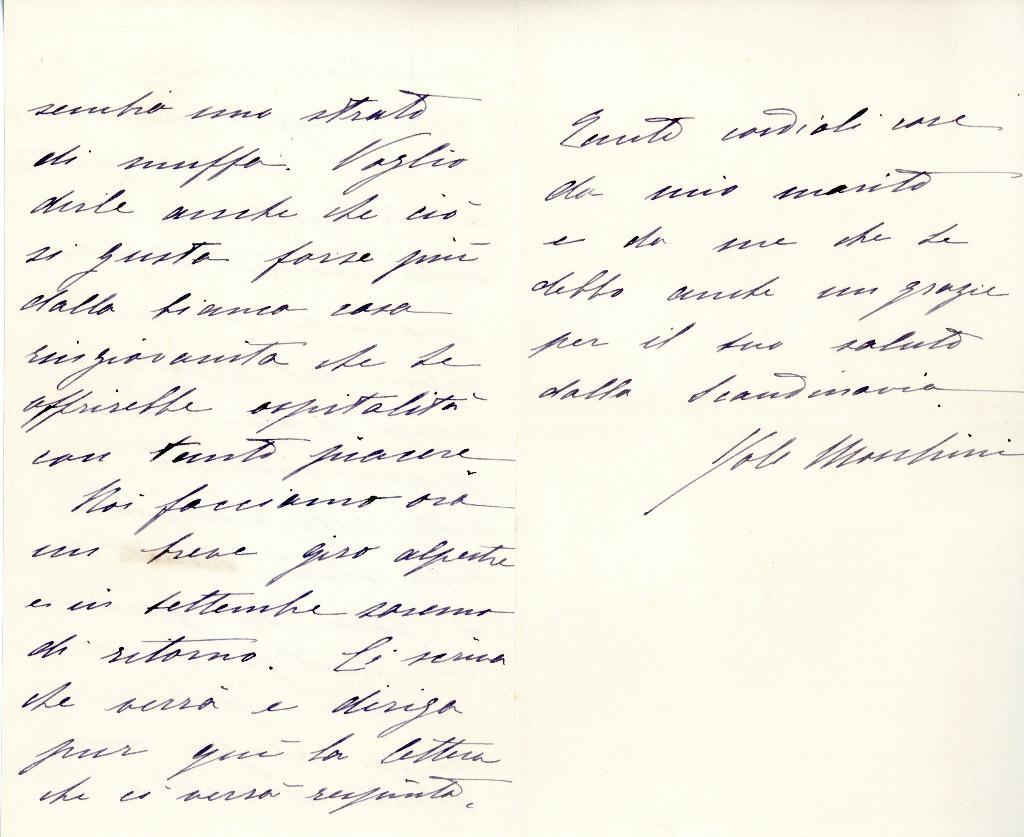 sembra uno strato
di muffa. Voglio
dirle anche che ciò
si gusta forse più
dalla bianca casa
ringiovanita che Le
offrirebbe ospitalità
con tanto piacere
Noi facciamo ora
un breve giro alpestre
e in settembre saremo
di ritorno. Ci scriva
che verrà e diriga
pur quì la lettera
che ci verrà respinta.
Tante cordiali cose
da mio marito
e da me che Le
debbo anche un grazie
per il suo saluto
dalla Scandinavia.
Yole Moschini